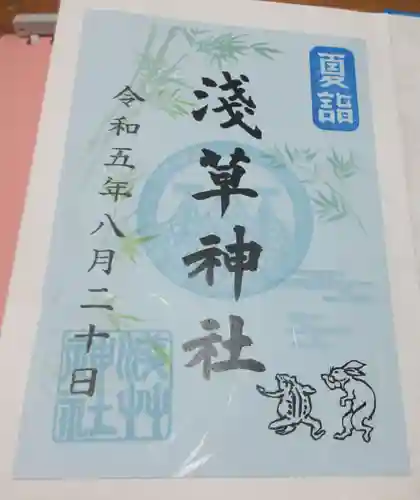 夏詣
淺草神社
令和五年八月二十日
浅草
神社